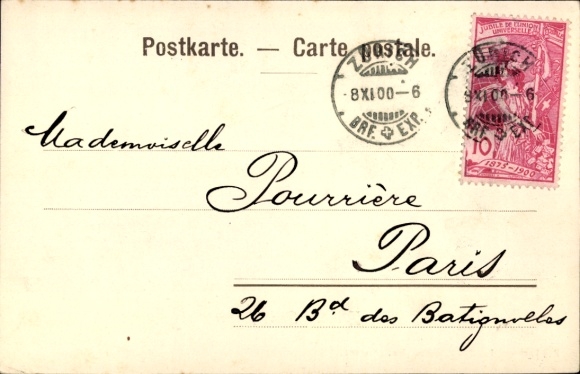 Postkarte. — Carte postale.
JUBILÉ DE L'UNION POSTALE
UNIVERSELLE
10
1875–1900
ZÜRICH
8 XI 00 – 6
BRF. EXP.
ZÜRICH
8 XI 00 – 6
BRF. EXP.
Mademoiselle
Pourrière
Paris
26 Bd des Batignolles